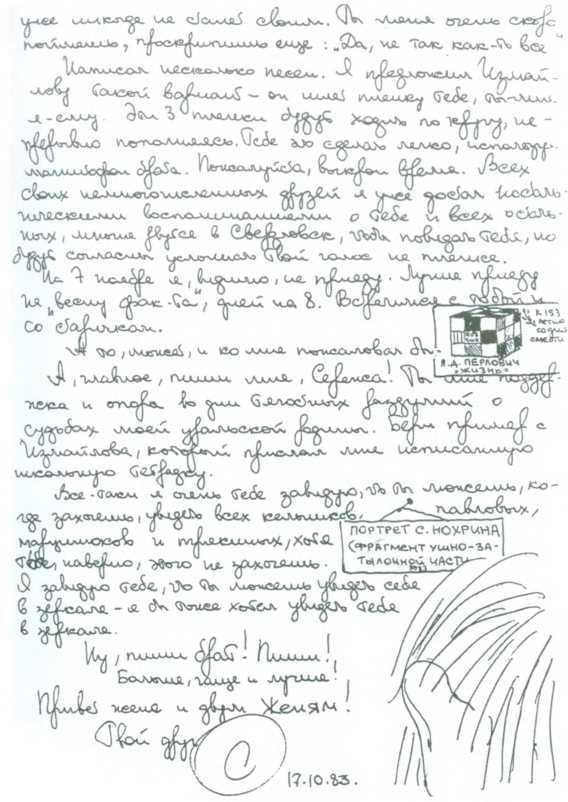 уже никогда не станет своим. Ты меня очень скоро
потянешь, проскрипишь еще: „Да, не так как-то все"
Написал несколько песен. Я предложил Измай-
лову такой вариант – он шлет пленку тебе, ты-мне.
я-ему. Эти 3 пленки будут ходить по кругу, не-
прерывно пополняясь. Тебе это сделать легко,
магнитофон брата. Пожалуйста, выкрои время. Всех
своих немногочисленных друзей я уже достал носталь-
гическими воспоминаниями о тебе и всех осталь-
ных, многие рвутся в Свердловск, чтобы повидать тебя, но
будут согласны услышать твой голос на пленке.
На 7 ноября я, видимо, не приеду. Лучше приеду
на „весну фак-та", дней на 8. Встретимся с тобой и
со стариками.
А то, может, и ко мне пожаловал бы.
К 153
летию
со дня
смерти
Я.Д. ПЕРЛОВИЧ
„ЖИЗНЬ"
А, главное, пиши мне, Сережа! Ты мне поддер-
жка и опора в дни тягостных раздумий о
судьбах моей уральской родины. Бери пример с
Измайлова, который прислал мне исписанную
школьную тетрадку.
Все-таки я очень тебе завидую, что ты можешь, ко-
гда захочешь, увидеть всех павловых,
и хотя
тебе, наверно, этого не захочешь.
ПОРТРЕТ С. НОХРИНА
(ФРАГМЕНТ УШНО-ЗА-
ТЫЛОЧНОЙ ЧАСТИ
Я завидую тебе, что ты можешь увидеть себя
в зеркале – я бы тоже хотел увидеть тебя
в зеркале.
Ну, пиши брат! Пиши!
Больше, чаще и лучше!
Привет жене и двум Женям!
Твой друг
С
17.10.83.